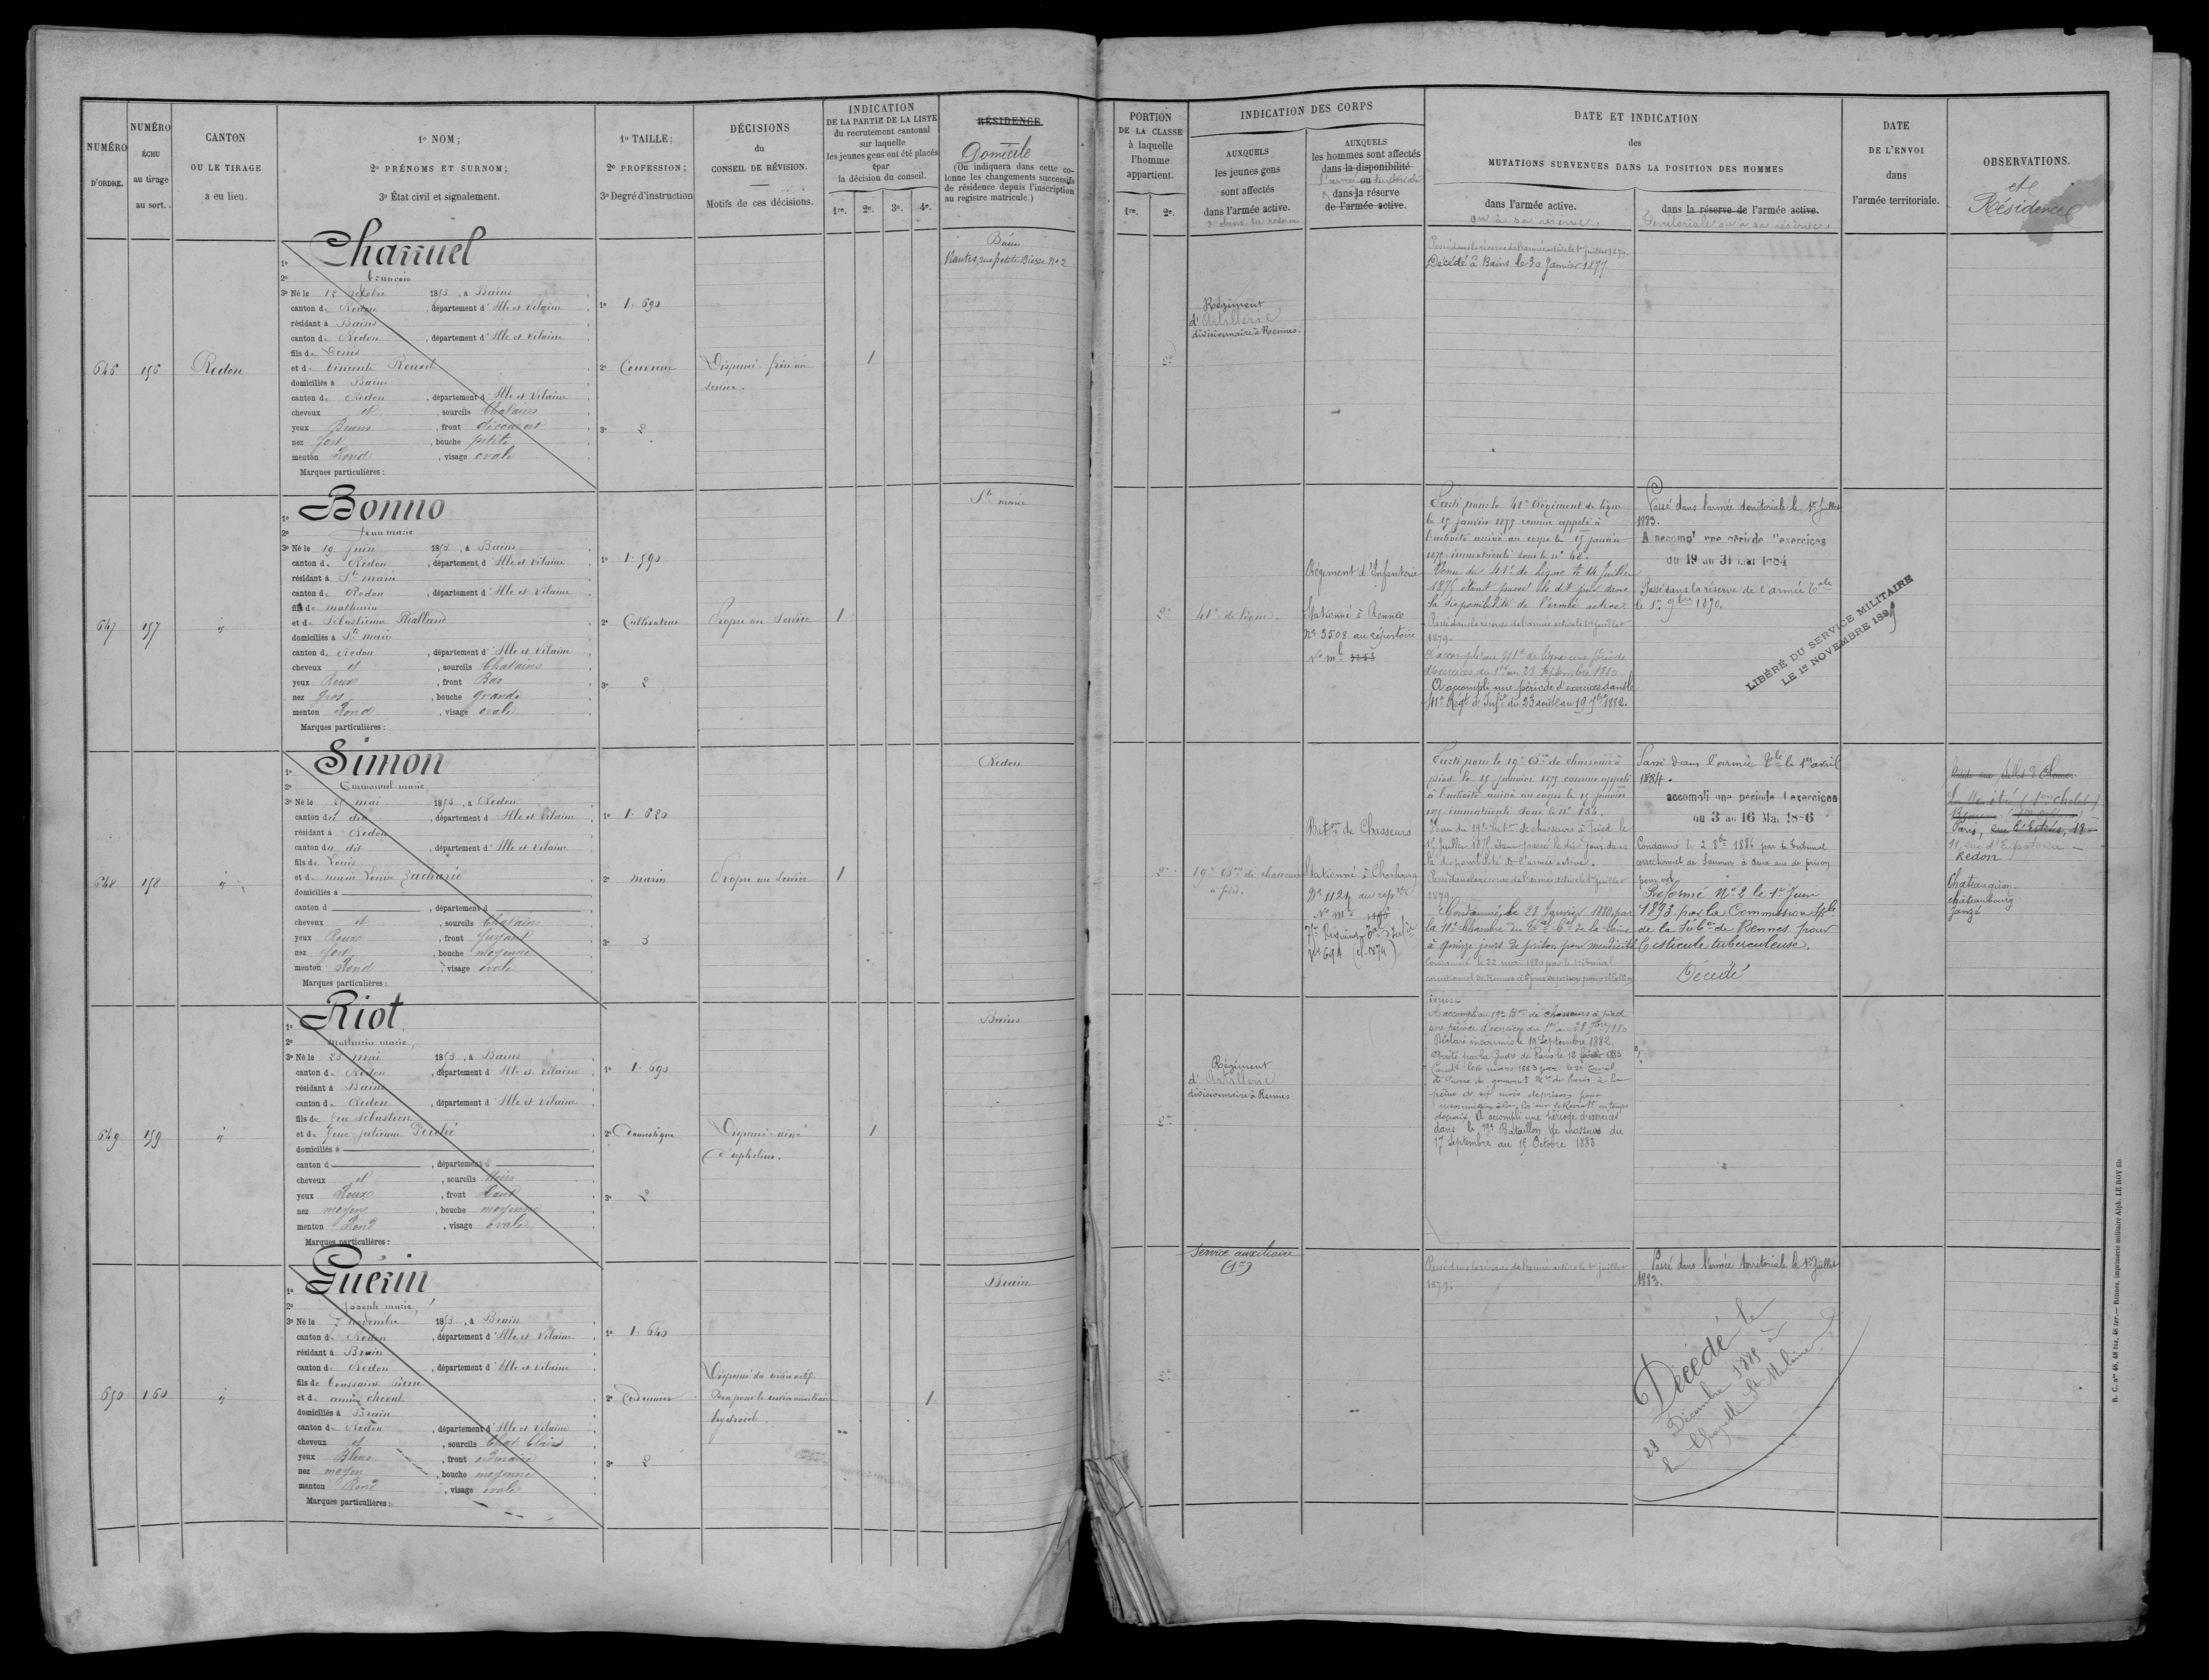 NUMÉRO
D'ORDRE.
NUMÉRO
ÉCHU
au tirage
au sort.
CANTON
OU LE TIRAGE
a eu lieu.
1º NOM;
2º PRÉNOMS ET SURNOM;
3º État civil et signalement.
1º TAILLE;
2º PROFESSION;
3º Degré d'instruction
DÉCISIONS
du
CONSEIL DE RÉVISION.
Motifs de ces décisions.
INDICATION
DE LA PARTIE DE LA LISTE
du recrutement cantonal
sur laquelle
les jeunes gens ont été placés
par
la décision du conseil.
1re. 2e. 3e. 4e.
RÉSIDENCE
Domicile
(On indiquera dans cette co-
lonne les changements successifs
de résidence depuis l'inscription
au registre matricule.)
PORTION
DE LA CLASSE
à laquelle
l'homme
appartient.
1re. 2e.
INDICATION DES CORPS
AUXQUELS
les jeunes gens
sont affectés
dans l'armée active.
AUXQUELS
les hommes sont affectés
dans la disponibilité
ou
dans la réserve
de l'armée active.
DATE ET INDICATION
des
MUTATIONS SURVENUES DANS LA POSITION DES HOMMES
dans l'armée active.
ou à sa réserve.
dans la réserve de l'armée active.
territoriale ou à sa réserve.
DATE
DE L'ENVOI
dans
l'armée territoriale.
OBSERVATIONS.
et
Résidence
646 156 Redon
Charruel
François
3º Né le 12 octobre 1853, à Bains
canton de Redon, département d'Ille et Vilaine
résidant à Bains
canton de Redon, département d'Ille et Vilaine
fils de Denis
et de Vincente Renard
domiciliés à Bains
canton de Redon, département d'Ille et Vilaine
cheveux et, sourcils Chatains
yeux Bruns, front découvert
nez fort, bouche petite
menton Rond, visage ovale
Marques particulières:
1º 1.690
2º Couvreur
3º 2
Dispensé frère au
service.
1
Bains
Nantes, rue petite Biesse Nº 2
2e
Régiment
d'Artillerie
divisionnaire à Rennes.
Passé dans la réserve de l'armée active le 1er juillet 1879.
Décédé à Bains le 30 Janvier 1877
647 157 "
Bonno
Jean marie
3º Né le 19 Juin 1853, à Bains
canton de Redon, département d'Ille et Vilaine
résidant à Ste marie
canton de Redon, département d'Ille et Vilaine
fils de mathurin
et de Sébastienne Rialland
domiciliés à Ste marie
canton de Redon, département d'Ille et Vilaine
cheveux et, sourcils Chatains
yeux Roux, front Bas
nez gros, bouche grande
menton Rond, visage ovale
Marques particulières:
1º 1.590
2º Cultivateur
3º 2
Propre au Service
1
Ste marie
2e
41e de ligne.
Régiment d'Infanterie
Stationné à Rennes
Nº 3508 au répertoire
Parti pour le 41e Régiment de ligne
le 15 janvier 1875 comme appelé à
l'activité arrivé au corps le 15 janvier
1875 immatriculé sous le nº 48.
Venu du 41e de ligne le 14 Juillet
1875 étant passé le dit jour dans
la disponibilité de l'armée active.
Passé dans la réserve de l'armée active le 1er juillet
1879.
A accompli au 41e de ligne une période
d'exercices du 1er au 28 septembre 1880
A accompli une période d'exercices dans le
41e Régt d'Infie du 23 août au 19 7bre 1882.
Passé dans l'armée territoriale le 1er Juillet
1883.
A accompt une période d'exercices
du 19 au 31 Mai 1884
Passé dans la réserve de l'armée Tale
le 1er 9bre 1890.
LIBÉRÉ DU SERVICE MILITAIRE
LE 1er NOVEMBRE 1899
648 158 "
Simon
Emmanuel marie
3º Né le 25 mai 1853, à Redon
canton du dit, département d'Ille et Vilaine
résidant à Redon
canton du dit, département d'Ille et Vilaine
fils de Louis
et de marie Louise Zacharie
domiciliés à
canton d, département d
cheveux et, sourcils Chatains
yeux Roux, front fuyant
nez fort, bouche moyenne
menton Rond, visage ovale
Marques particulières:
1º 1.620
2º marin
3º 3
Propre au Service
1
Redon
2e
19e Bon de chasseurs
à pied.
Baton de Chasseurs
Stationné à Cherbourg
Nº 1124 au repre
Parti pour le 19e Bon de chasseurs à
pied le 15 janvier 1875 comme appelé
à l'activité arrivé au corps le 15 janvier
1875 immatriculé sous le nº 154.
Venu du 19e Baton de chasseurs à Pied le
15 Juillet 1875 étant passé le dit jour dans
la disponibilité de l'armée active.
Passé dans la réserve de l'armée active le 1er juillet
1879.
Condamné, le 28 Janvier 1880, par
la 11e chambre du Tal Cel de la Seine
à quinze jours de prison pour mendicité
Condamné le 22 mai 1880 par le tribunal
ivresse
A accompli au 19e Bon de chasseurs à pied
une période d'exercices du 1er au 28 7bre 1880
Déclaré insoumis le 19 Septembre 1882.
de Guerre du gouvernt mre de Paris à la
peine de six mois de prison pour
A accompli une période d'exercices
dans le 19e Bataillon de chasseurs du
17 Septembre au 15 Octobre 1883
Passé dans l'armée Tale le 1er avril
1884.
accompli une période d'exercices
du 3 au 16 Mai 1886
Condamné le 2 8bre 1886 par le tribunal
correctionnel de Saumur à deux ans de prison
pour vol
Réformé Nº 2 le 1er Juin
1893 par la Commission Sple
de la Subon de Rennes pour
testicule tuberculeuse.
Décédé
Paris,
11, rue d'Eupatoria
Redon
Chateaugiron
châteaubourg
Janzé
649 159 "
Riot
Mathurin marie,
3º Né le 25 mai 1853, à Bains
canton de Redon, département d'Ille et Vilaine
résidant à Bains
canton de Redon, département d'Ille et Vilaine
fils de feu Sébastien
et de feue julienne Derché
domiciliés à
canton d, département d
cheveux et, sourcils Noirs
yeux Roux, front haut
nez moyen, bouche moyenne
menton Rond, visage ovale
Marques particulières:
1º 1.690
2º Domestique
3º 2
Dispensé ainé
d'orphelins.
1
Bains
2e
Régiment
d'Artillerie
divisionnaire à Rennes
650 160 "
Guérin
Joseph marie,
3º Né le 7 novembre 1853, à Brain
canton de Redon, département d'Ille et Vilaine
résidant à Brain
canton de Redon, département d'Ille et Vilaine
fils de Toussaint Pierre
et de anne cheval
domiciliés à Brain
canton de Redon, département d'Ille et Vilaine
cheveux et, sourcils Chat. Clairs
yeux Bleus, front ordinaire
nez moyen, bouche moyenne
menton Rond, visage ovale
Marques particulières:
1º 1.640
2º Cordonnier
3º 2
Dispensé du service actif
Bon pour le service auxiliaire
hydrocèle.
1
Brain
2e
Service auxiliaire
(1er)
Passé dans la réserve de l'armée active le 1er juillet
1879.
Passé dans l'armée territoriale le 1er Juillet
1883.
Décédé le
23 Décembre 1885 à
la Chapelle St Melaine
B. C. nos 48, 48 bis, 48 ter. — Rennes, imprimerie militaire Alph. LE ROY fils